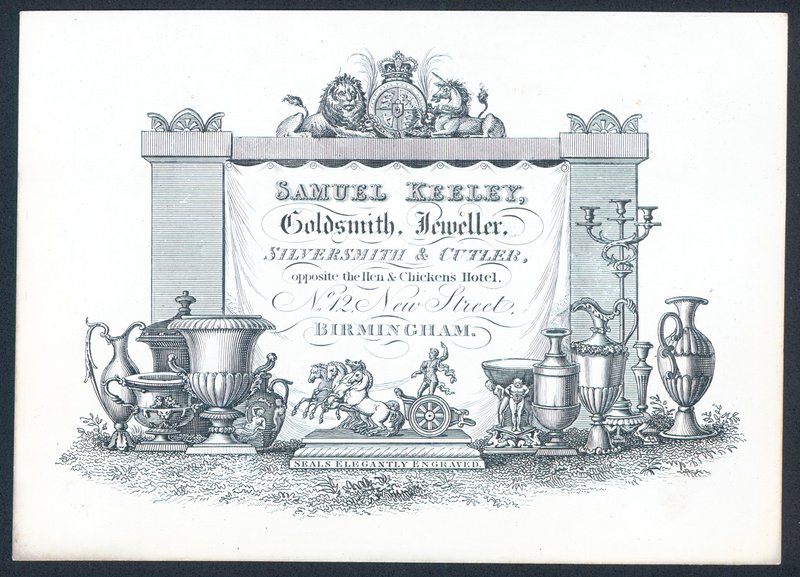 SAMUEL KEELEY,
Goldsmith, Jeweller,
SILVERSMITH & CUTLER,
opposite the Hen & Chickens Hotel,
No. 12, New Street,
BIRMINGHAM.
SEALS ELEGANTLY ENGRAVED.